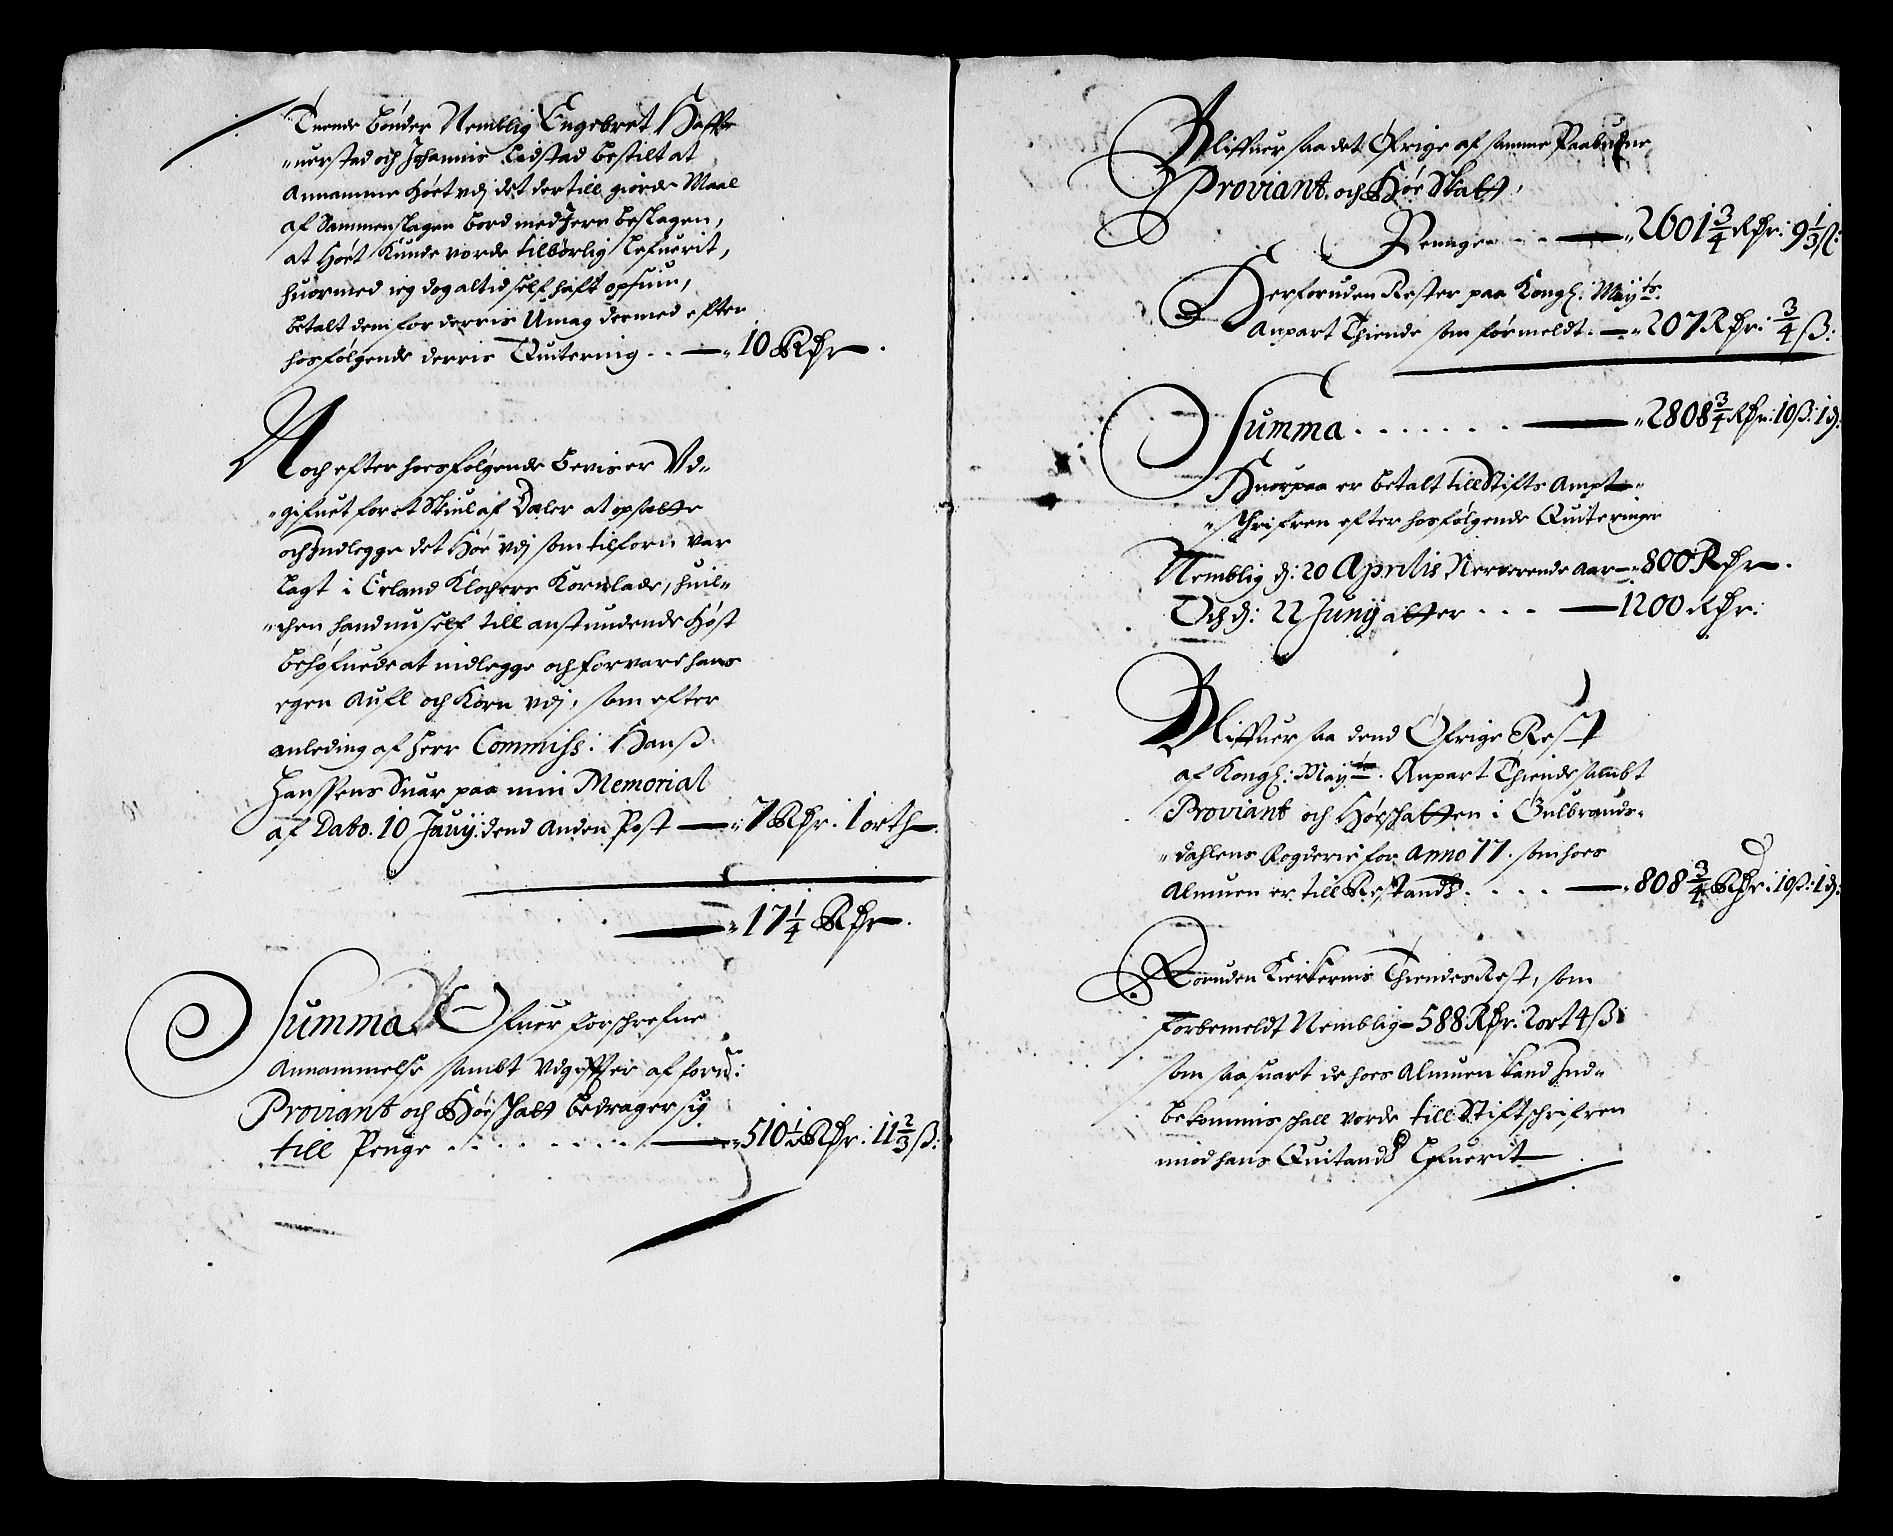 Tuende Bønder Nemblig Engebret Haffe
"uerstad och Johannis Lidstad bestilt at
Annamme Høet vdj det dertill giorde Maal
af Sammenslagen Bord med Jern beslagen,
at Høet Kunde vorde tilbørlig Lefuerit,
huormed ieg dog altid self haft opsiun,
betalt dem for derris Umag dermed efter
hosfølgende derris Quitering . . — " 10 Rdr .
Noch efter hoesfølgende Beviser Vd-
"gifuet for et Skiul af Dæler at opsætte
och Indlegge det Høe vdj som tilforn var
Lagt i Erland Klochers Kornlade, huil-
"chen hand nu self till anstundende Høst
behøfuede at indlegge och forvare hans
egen Aufl och Korn vdj, som efter
anleding af Herr Commiss: Hanß
Hanssens Suar paa min Memorial
af Dato. 10 Junij: dend Anden Post — " 7 Rdr. 1 orth
— " 17 1/4 Rdr .
Summa Ofuer forschrefne
Annammelse sambt Vdgiffter af forn:
Proviant och Høeschatt bedrager sig
till Penge . . . . . . . — " 510 1/2 Rdr: 11 2/3 ß:
Bliffuer saa det Øfrige af samme Paabudne
Proviant och Høe Skatt,
Penuge . . . — " 2601 3/4 Rdr: 9 1/3 ß:
Herforuden Rester paa Kongl: May:ts
Anpart Thiende som formeldt . — " 207 Rdr: 3/4 ß:
Summa . . . . . . . — " 2808 3/4 Rdr: 10 ß: 1 d:
Huorpaa er betalt till Stifts Ampt-
"schrifren efter hosfølgende Quiteringer
Nemblig d: 20 Aprilis Nerverende Aar — " 800 Rdr .
Och d: 22 Junij atter . . . — 1200 Rdr:
Bliffuer saa dend Øfrige Rest
af Kongl: May:ts Anpart Thiende sambt
Proviant och Høeschatten i Gulbrands-
"dahlens Fogderie for Anno 77. som hoes
Almuen er till Restands . . . . — " 808 3/4 Rdr: 10 ß: 1 d:
Foruden Kierkernis Thiendes Rest, som
forbemeldt Nemblig — 588 Rdr: 2 ort 4 ß
som saa snart de hoes Almuen kand Ind-
bekommis schall vorde till Stiftschrifren
imod hans Quitands Lefuerit